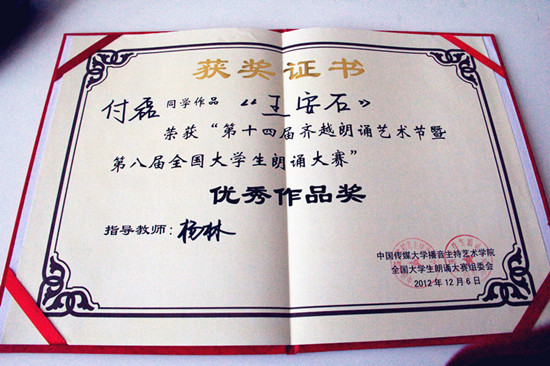 获奖证书
付磊同学作品“王安石》
荣获“第十四届齐越朗诵艺术节暨
第八届全国大学生朗诵大赛”
优秀作品奖
指导教师：杨林
中国传媒大学播音主持艺术学院
全国大学生朗诵大赛组委会
2012年12月6日